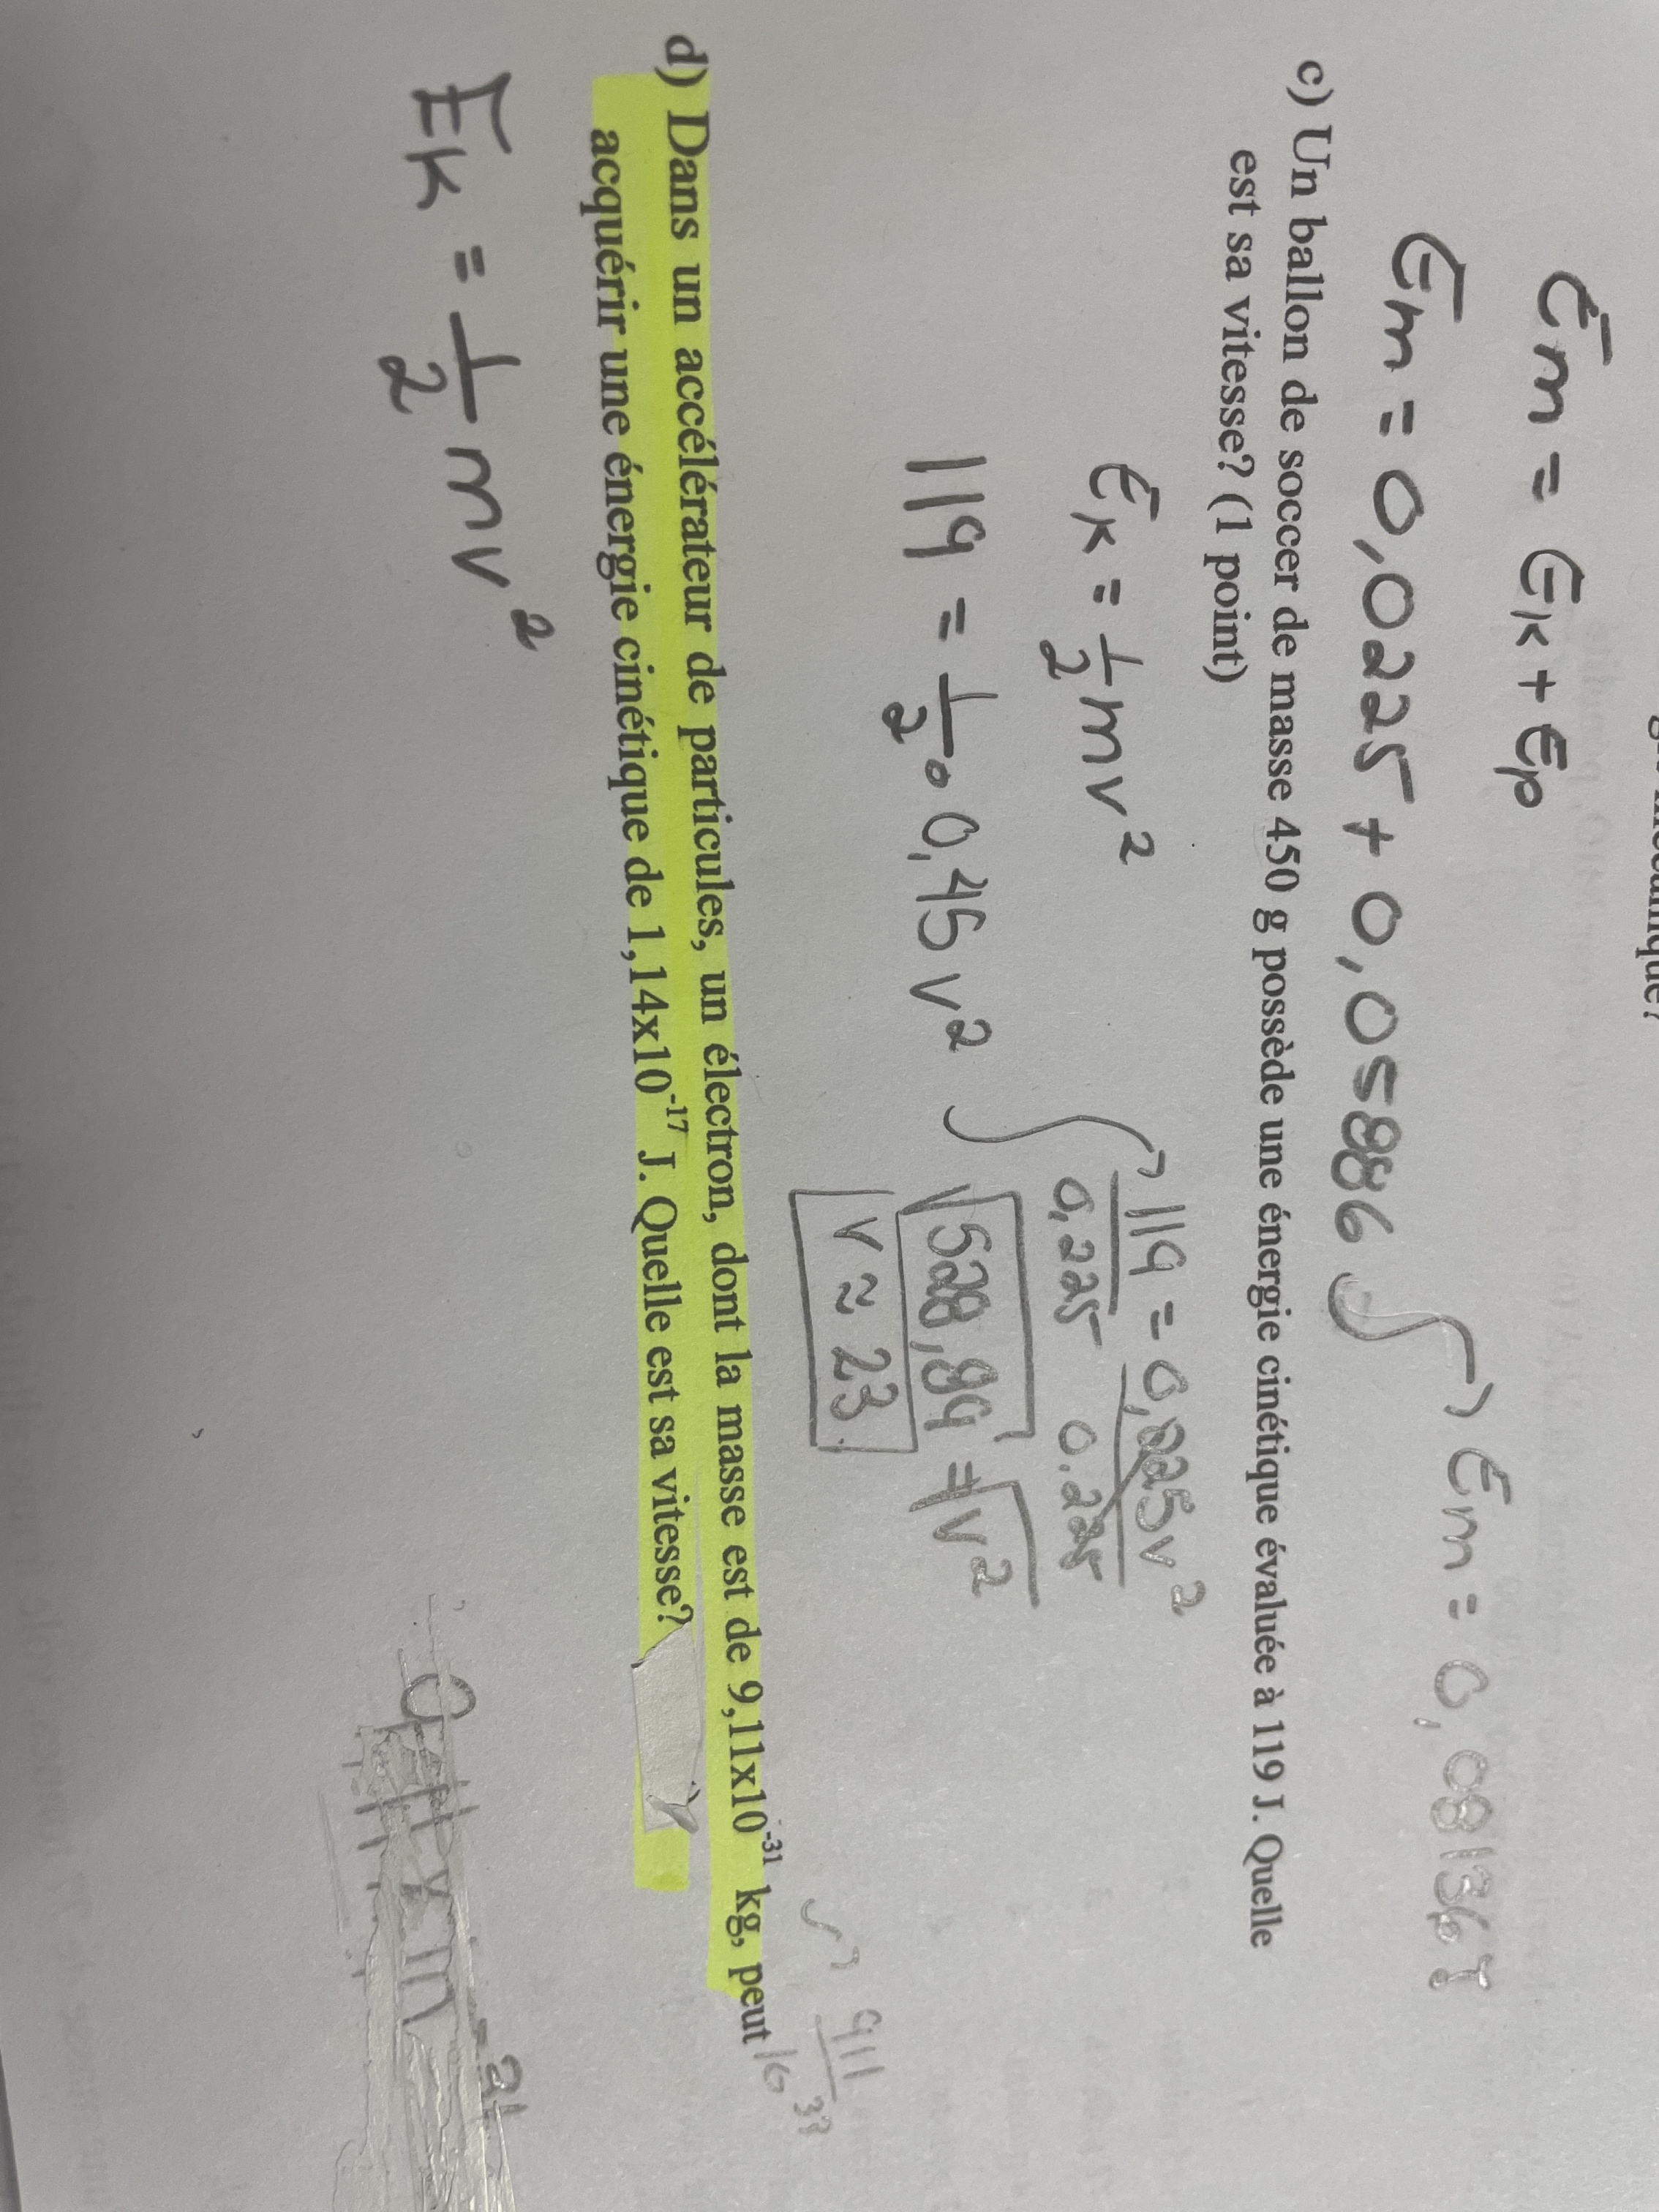 Em = Ek + Ep
Em = 0,0225 + 0,05886 Em = 0,08136 J
c) Un ballon de soccer de masse 450 g possède une énergie cinétique évaluée à 119 J. Quelle
est sa vitesse? (1 point)
Ek = 1/2 mv²
119 = 1/2 • 0,45 v²
119/0,225 = 0,225v²/0.225
√528,89 = √v²
v ≈ 23
911
d) Dans un accélérateur de particules, un électron, dont la masse est de 9,11x10⁻³¹ kg, peut
acquérir une énergie cinétique de 1,14x10⁻¹⁷ J. Quelle est sa vitesse?
Ek = 1/2 mv²